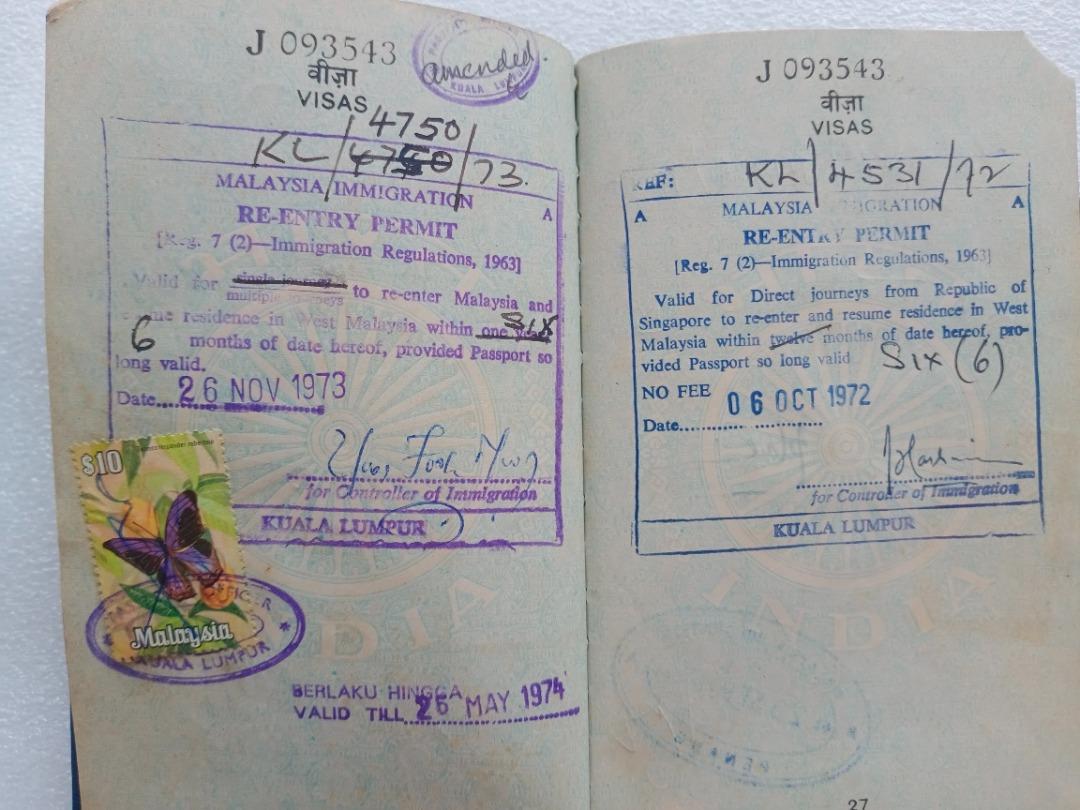 J 093543
वीज़ा
VISAS
amended.
KUALA LUMPUR
4750
KL/4750/73.
MALAYSIA IMMIGRATION
RE-ENTRY PERMIT A
[Reg. 7 (2)—Immigration Regulations, 1963]
Valid for single journey to re-enter Malaysia and
multiple journeys
residence in West Malaysia within one year Six
6 months of date hereof, provided Passport so
long valid.
Date 26 NOV 1973
for Controller of Immigration
KUALA LUMPUR
$10
Malaysia
OFFICER
KUALA LUMPUR
BERLAKU HINGGA
VALID TILL 26 MAY 1974
INDIA
J 093543
वीज़ा
VISAS
REF: KL/4531/72
A MALAYSIA IMMIGRATION A
RE-ENTRY PERMIT
[Reg. 7 (2)—Immigration Regulations, 1963]
Valid for Direct journeys from Republic of
Singapore to re-enter and resume residence in West
Malaysia within twelve months of date hereof, pro-
vided Passport so long valid Six (6)
NO FEE 06 OCT 1972
Date
for Controller of Immigration
KUALA LUMPUR
INDIA
27